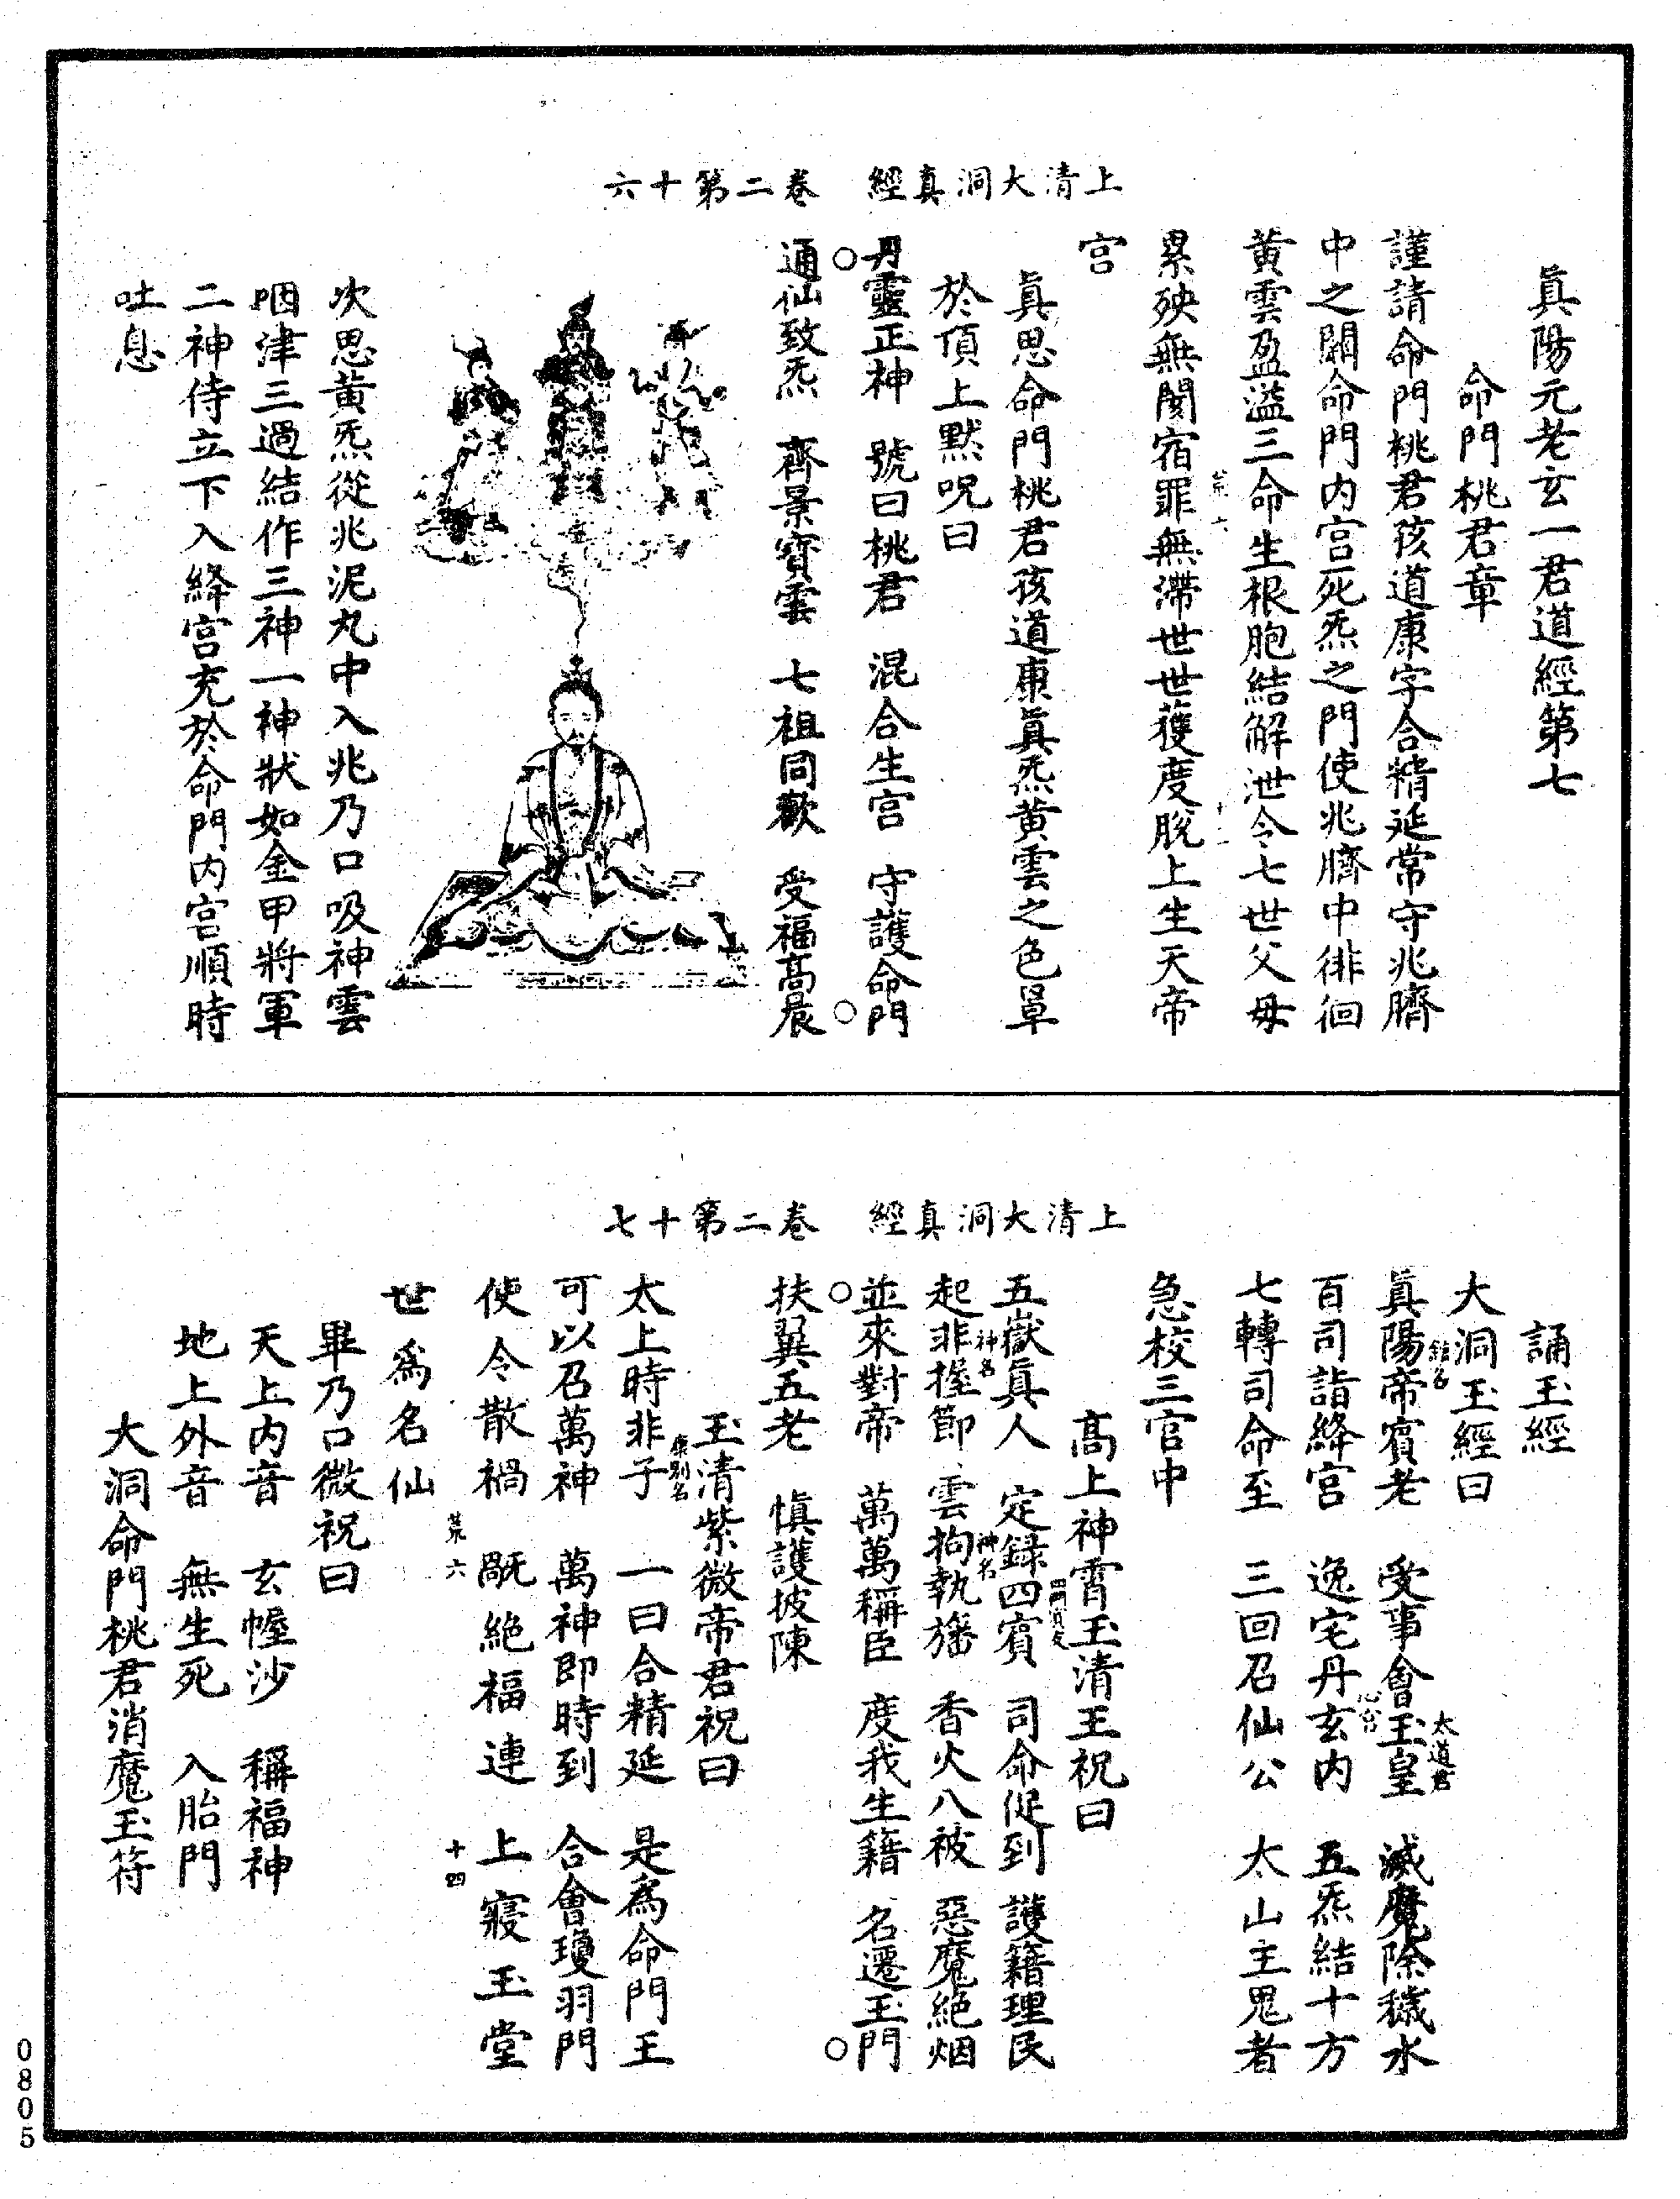 上清大洞真經　卷二第十六
真陽元老玄一君道經第七
命門桃君章
謹請命門桃君孩道康字合精延常守兆臍
中之關命門内宫死炁之門使兆臍中徘徊
黄雲盈溢三命生根胞結解泄令七世父母
累殃無閡宿罪無滯世世獲度脫上生天帝
宫
真思命門桃君孩道康真炁黄雲之色罩
於頂上默呪曰
丹靈正神　號曰桃君　混合生宫　守護命門
通仙致炁　齊景寶雲　七祖同歡　受福高晨
次思黄炁從兆泥丸中入兆乃口吸神雲
咽津三過結作三神一神狀如金甲將軍
二神侍立下入絳宫充於命門内宫順時
吐息
上清大洞真經　卷二第十七
誦玉經
大洞玉經曰
真陽館名帝賓老　受事會玉皇太道君　滅魔除穢水
百司詣絳宫　逸宅丹玄内心宫　五炁結十方
七轉司命至　三回召仙公　太山主鬼者
急校三官中
高上神霄玉清王祝曰
五嶽真人　定録四賓　司命促到　護籍理民
起非神名握節　雲拘神名執旛　香火八被　惡魔絶烟
並來對帝　萬萬稱臣　度我生籍　名遷玉門
扶翼五老　慎護披陳
玉清紫微帝君祝曰
太上時非子康别名　一曰合精延　是爲命門王
可以召萬神　萬神即時到　合會瓊羽門
使令散禍　翳絶福連　上寢玉堂
世爲名仙
菜六　十四
畢乃口微祝曰
天上内音　玄幄沙　稱福神
地上外音　無生死　入胎門
大洞命門桃君消魔玉符
0805